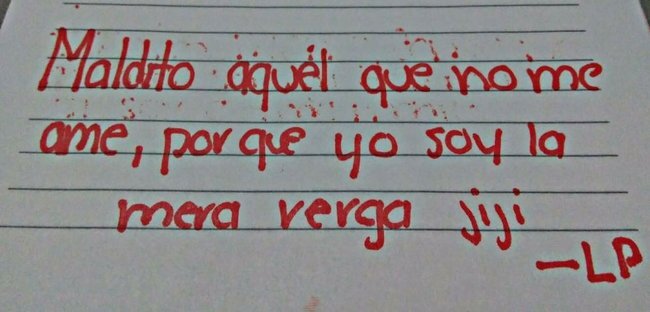 Maldito aquél que no me
ame, porque yo soy la
mera verga jiji
—LP